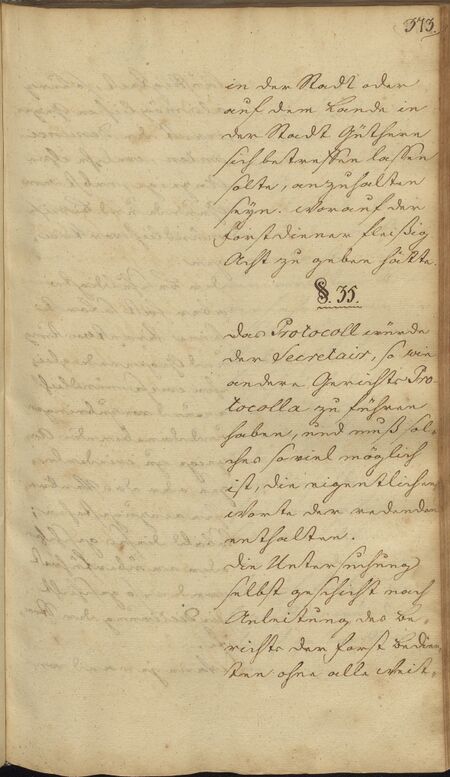 373.
in der Stadt oder
auf dem Lande in
der Stadt
sich betreffen lassen
solte, anzuhalten
seyn. Worauf der
Forstdiener fleißig
Acht zu geben hätte.
§. 35.
Das Protocoll würde
der Secretair, so wie
andere Gerichts Pro-
tocolla zu führen
haben, und muß sol-
ches so viel möglich
ist, die eigentlichen
Worte der redenden
enthalten.
Die Untersuchung
selbst geschieht nach
Anleitung des Be-
richts der Forst Bedien-
ten ohne alle Weit-